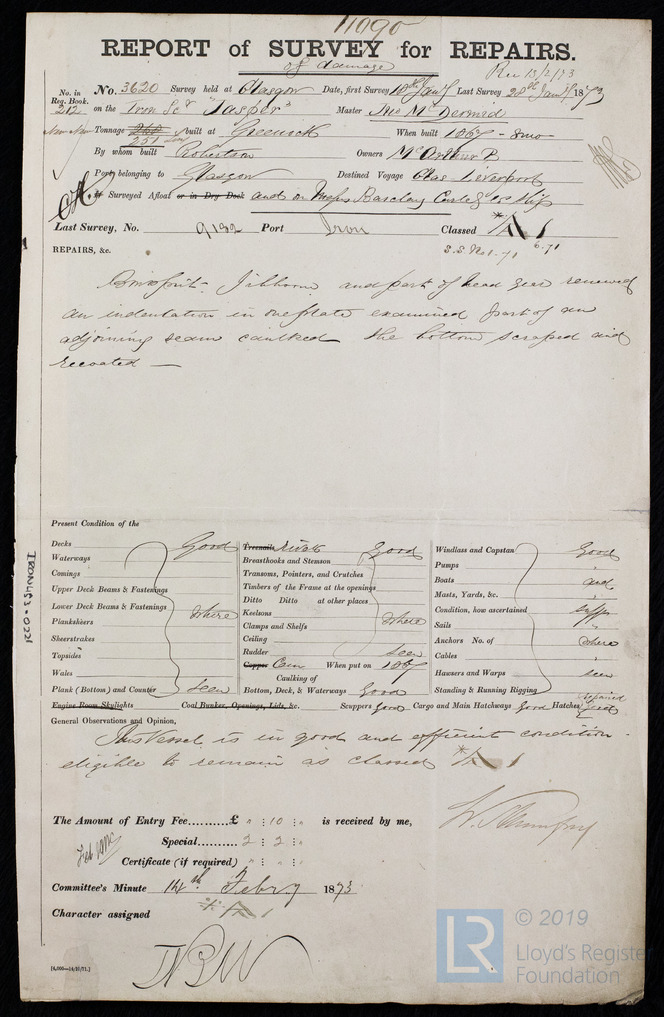 11090
REPORT of SURVEY for REPAIRS.
of damage
Rec 13/2/73
No. in Reg. Book. No. 3620 Survey held at Glasgow Date, first Survey 10th Jany Last Survey 28th Jany 1873
212 on the Iron Scr "Jasper" Master Jno McDermid
Tonnage 260 built at Greenock When built 1867 - 8mo
251
By whom built Robertson Owners McArthur
Port belonging to Glasgow Destined Voyage Glas Liverpool
If Surveyed Afloat or in Dry Dock and on Messrs Barclay Curle & Cos Slip
Last Survey, No. 9132 Port Iron Classed *A 1
S.S. No 1-71 6.71
REPAIRS, &c.
Bowsprit Jibboom and part of head gear renewed
an indentation in one plate examined part of an
adjoining seam caulked the bottom scraped and
recoated —
Present Condition of the
Decks Good Treenails Rivets Good Windlass and Capstan Good
Waterways Breasthooks and Stemson Pumps "
Comings Transoms, Pointers, and Crutches Boats and
Upper Deck Beams & Fastenings Timbers of the Frame at the openings Masts, Yards, &c. "
Lower Deck Beams & Fastenings Ditto Ditto at other places Condition, how ascertained
Planksheers where Keelsons Sails "
Sheerstrakes Clamps and Shelfs where Anchors No. of where
Topsides Ceiling Cables "
Wales Rudder seen Hawsers and Warps seen
Copper Cem When put on 1867
Caulking of
Plank (Bottom) and Counter seen Bottom, Deck, & Waterways Good Standing & Running Rigging repaired
Engine Room Skylights Coal Bunker, Openings, Lids, &c. Scuppers good Cargo and Main Hatchways Good Hatches good
General Observations and Opinion,
This Vessel is in good and efficient condition
eligible to remain as classed *A 1
The Amount of Entry Fee..........£ " : 10 : " is received by me,
Special.......... 2 : 2 : "
Certificate (if required) " : " : "
Committee's Minute 14th Febry 1873
Character assigned *A 1
[6,000—14/10/71.]
IRON483-0221
LR
© 2019
Lloyd's Register
Foundation